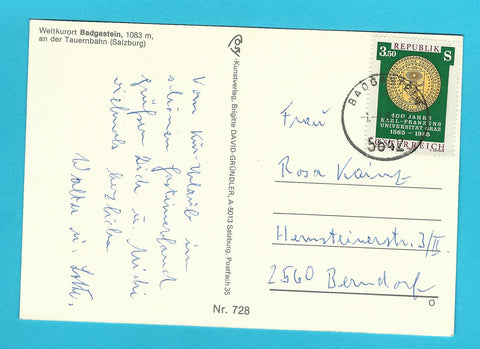 Weltkurort Badgastein, 1083 m,
an der Tauernbahn (Salzburg)
Vom Kur-Urlaub im
schönen Gasteinerland
grüßen Dich u. Michi
vielmals herzlichst
Walter u. Lotte.
Kunstverlag, Brigitte DAVID-GRÜNDLER, A-5013 Salzburg, Postfach 35
Nr. 728
REPUBLIK
3.50 S
400 JAHRE
KARL-FRANZENS
UNIVERSITÄT GRAZ
1585-1985
ÖSTERREICH
BADG
5642
Frau
Rosa Kainz
Hernsteinerstr. 3/II
2560 Berndorf